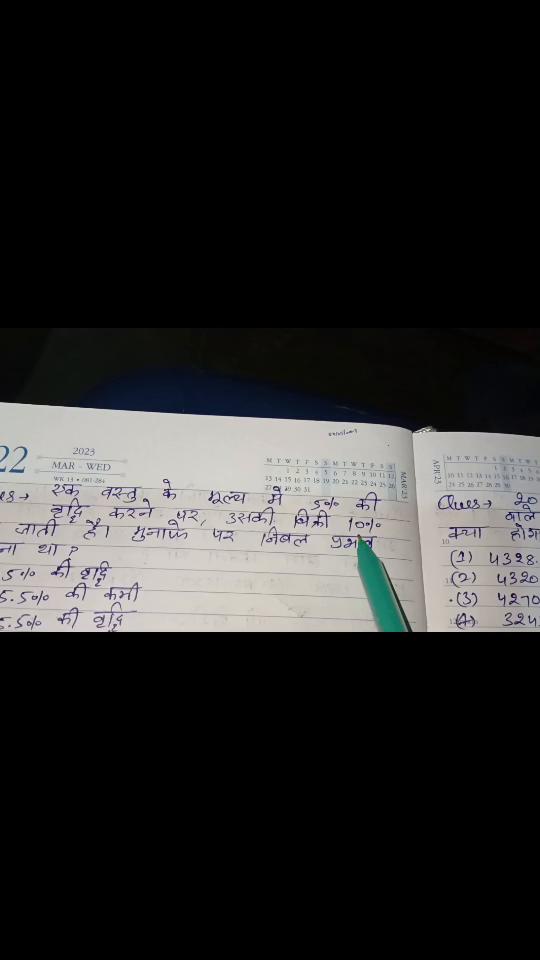 22
2023
MAR - WED
WK 13 • 081-284
M T W T F S S M T W T F S S
1 2 3 4 5 6 7 8 9 10 11 12
13 14 15 16 17 18 19 20 21 22 23 24 25 26
27 28 29 30 31
MAR'23
es → एक वस्तु के मूल्य में 5% की
वृद्धि करने पर, उसकी बिक्री 10%
जाती है। मुनाफे पर निबल प्रभाव
ना था?
5% की वृद्धि
5.5% की कमी
5.5% की वृद्धि
APR'23
M T W T F S S M T W
Ques → 20
वाले
क्या होगा
(1) 4328.
(2) 4320
(3) 4270
(4) 324